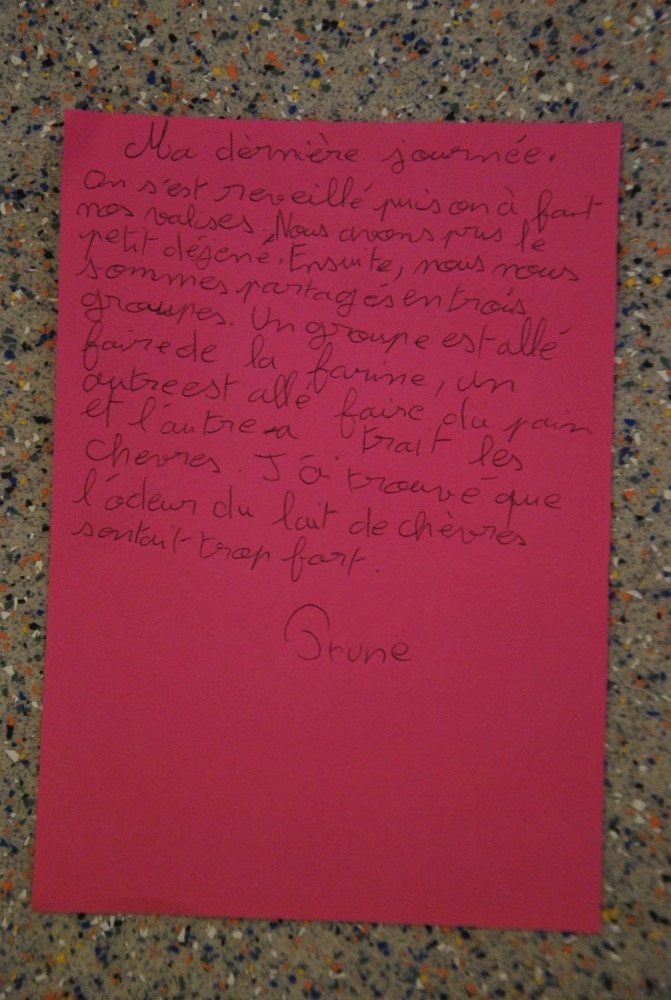 Ma dèrnière journée.
On s'est reveillé puis on à fait
nos valises. Nous avons pris le
petit déjené. Ensuite, nous nous
sommes partagés en trois
groupes. Un groupe est allé
faire de la farine, un
autre est allé faire du pain
et l'autre a trait les
chevres. J'ai trouvé que
l'odeur du lait de chèvres
sentait trop fort.
Prune